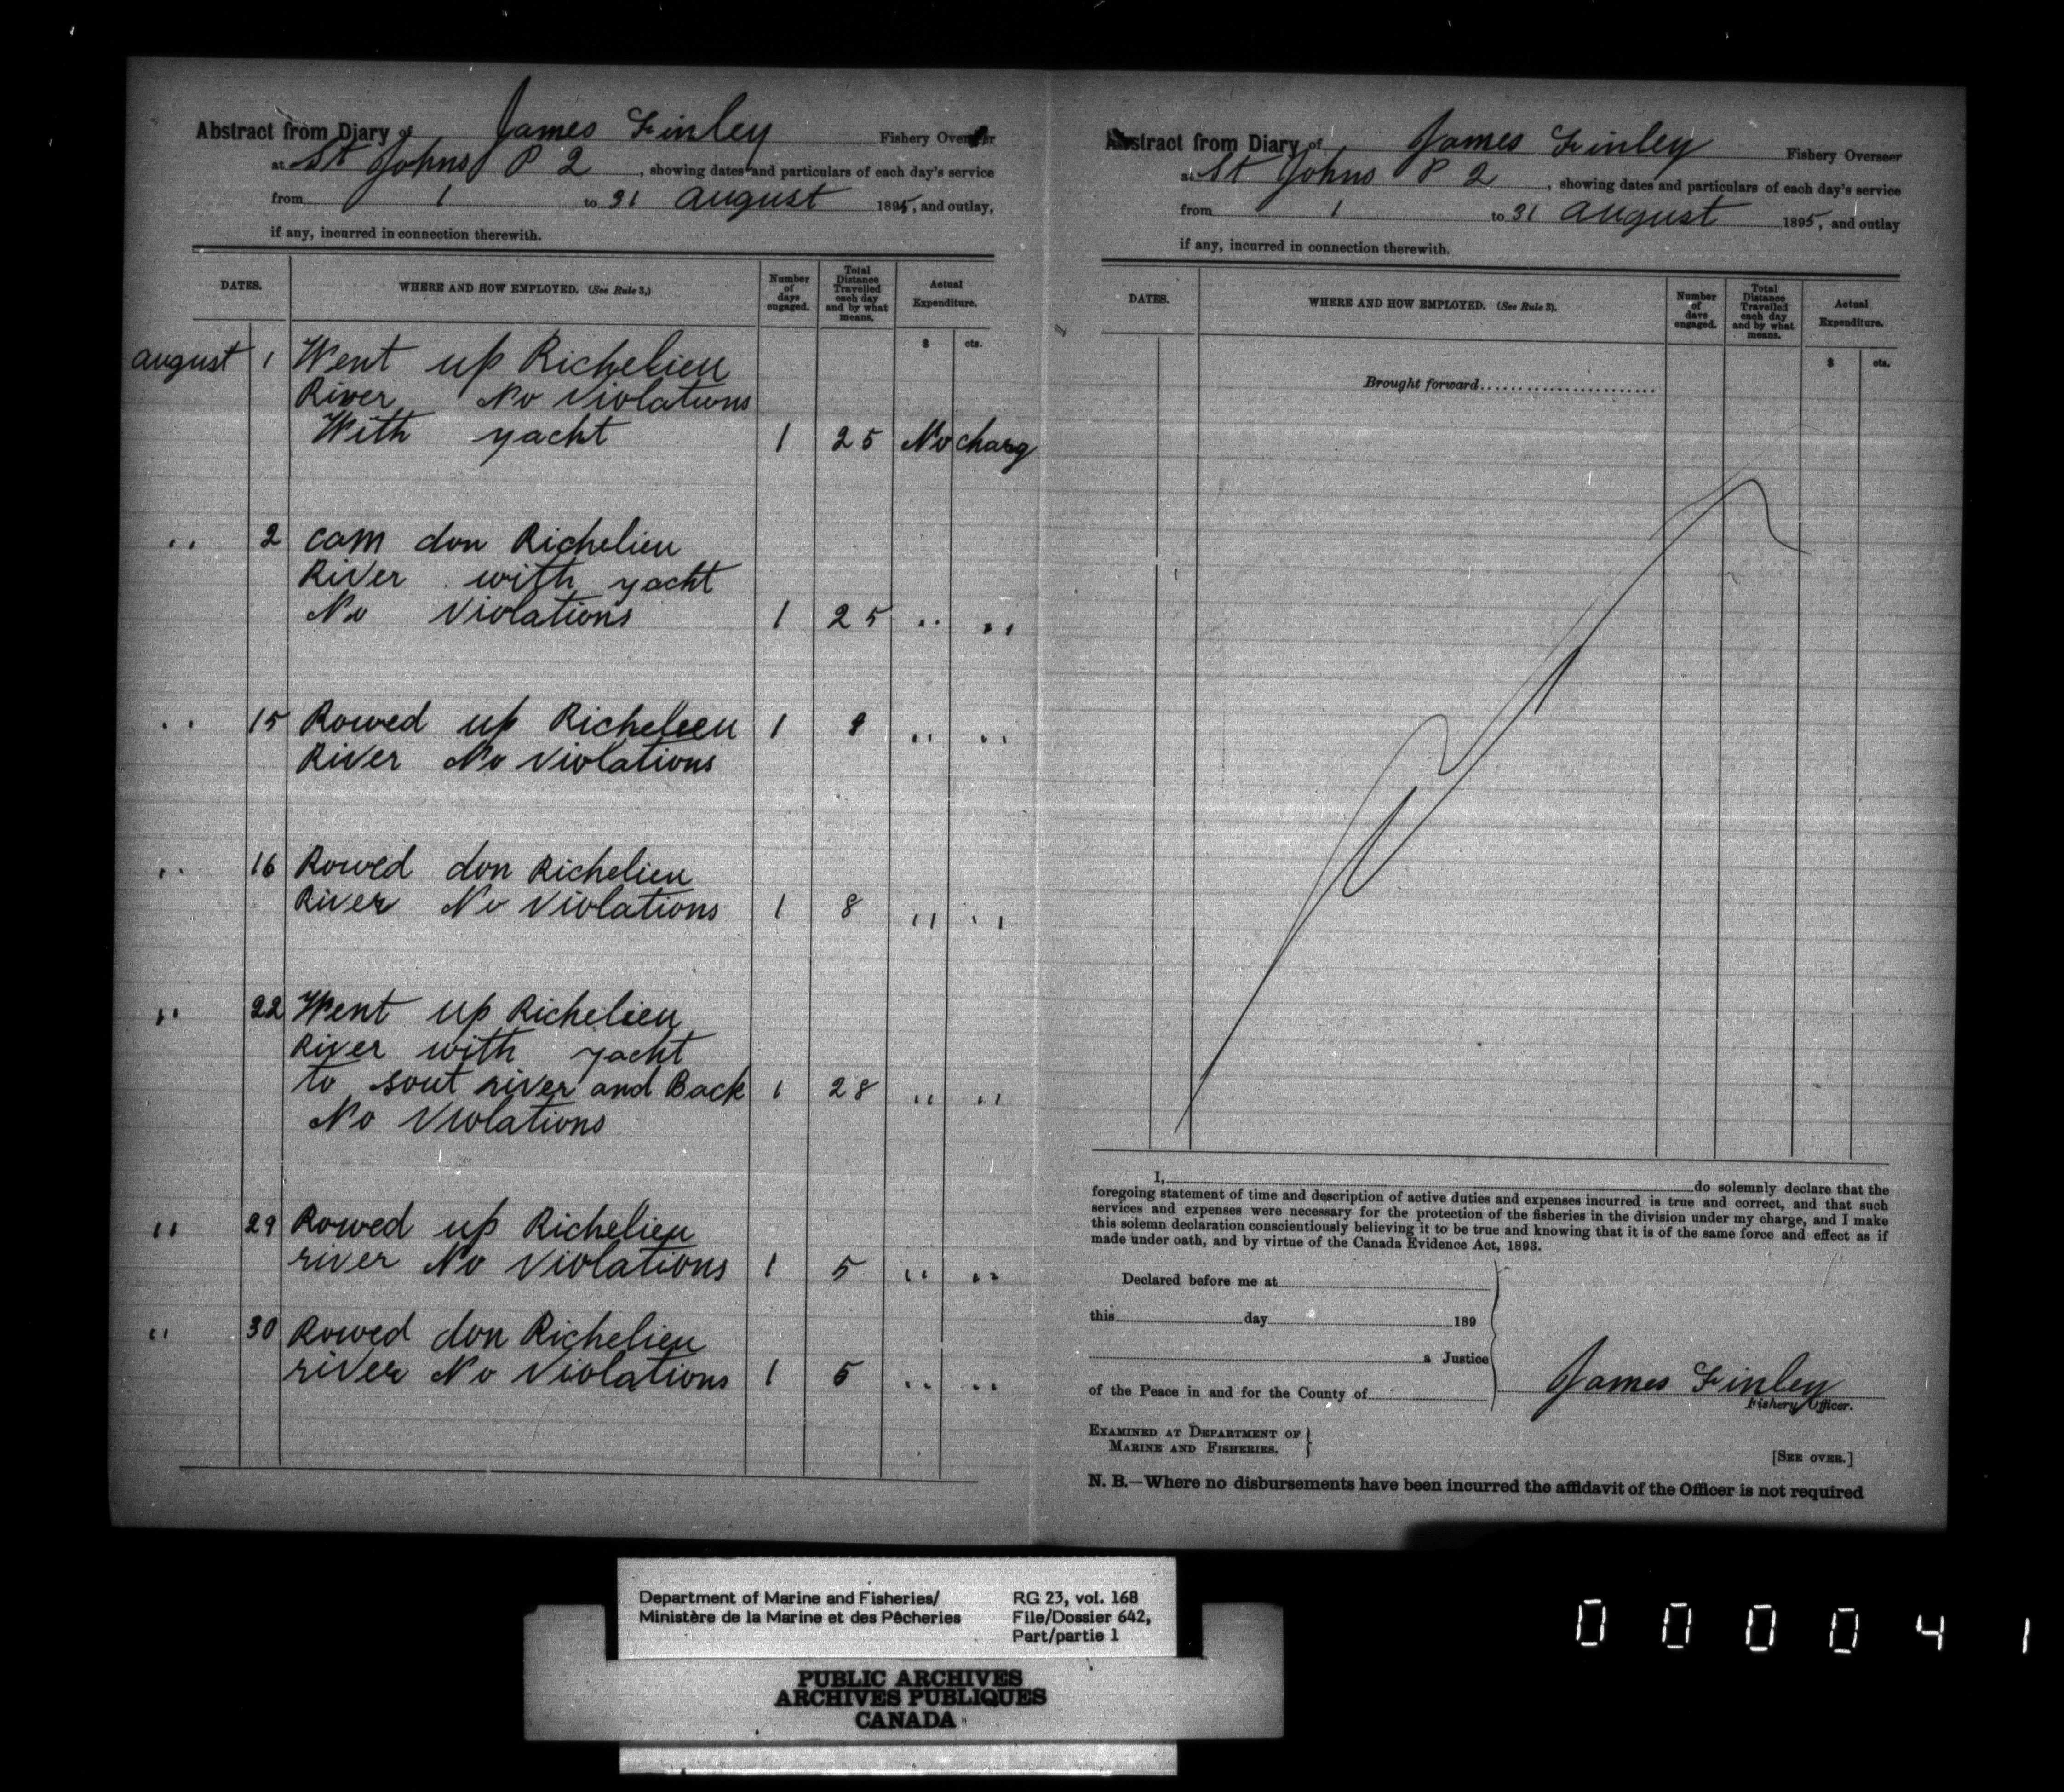 Abstract from Diary of James Finley Fishery Overseer
at St Johns P 2, showing dates and particulars of each day's service
from 1 to 31 august 1895, and outlay,
if any, incurred in connection therewith.
DATES.
WHERE AND HOW EMPLOYED. (See Rule 3,)
Number of days engaged.
Total Distance Travelled each day and by what means.
Actual Expenditure.
$ cts.
august 1 Went up Richelieu
River No Violations
With yacht 1 25 No charg
" 2 cam don Richelieu
River with yacht
No Violations 1 25 " "
" 15 Rowed up Richeleeu 1 8 " "
River No Violations
" 16 Rowed don Richelieu
River No Violations 1 8 " "
" 22 Went up Richelieu
River with yacht
to sout river and Back 1 28 " "
No Violations
" 29 Rowed up Richelieu
river No Violations 1 5 " "
" 30 Rowed don Richelieu
river No Violations 1 5 " "
Abstract from Diary of James Finley Fishery Overseer
at St Johns P 2, showing dates and particulars of each day's service
from 1 to 31 august 1895, and outlay
if any, incurred in connection therewith.
DATES.
WHERE AND HOW EMPLOYED. (See Rule 3).
Number of days engaged.
Total Distance Travelled each day and by what means.
Actual Expenditure.
$ cts.
Brought forward
I, do solemnly declare that the
foregoing statement of time and description of active duties and expenses incurred is true and correct, and that such
services and expenses were necessary for the protection of the fisheries in the division under my charge, and I make
this solemn declaration conscientiously believing it to be true and knowing that it is of the same force and effect as if
made under oath, and by virtue of the Canada Evidence Act, 1893.
Declared before me at
this day 189
a Justice
of the Peace in and for the County of
James Finley
Fishery Officer.
EXAMINED AT DEPARTMENT OF
MARINE AND FISHERIES.
[SEE OVER.]
N. B.—Where no disbursements have been incurred the affidavit of the Officer is not required
Department of Marine and Fisheries/
Ministère de la Marine et des Pêcheries
RG 23, vol. 168
File/Dossier 642,
Part/partie 1
PUBLIC ARCHIVES
ARCHIVES PUBLIQUES
CANADA
000041